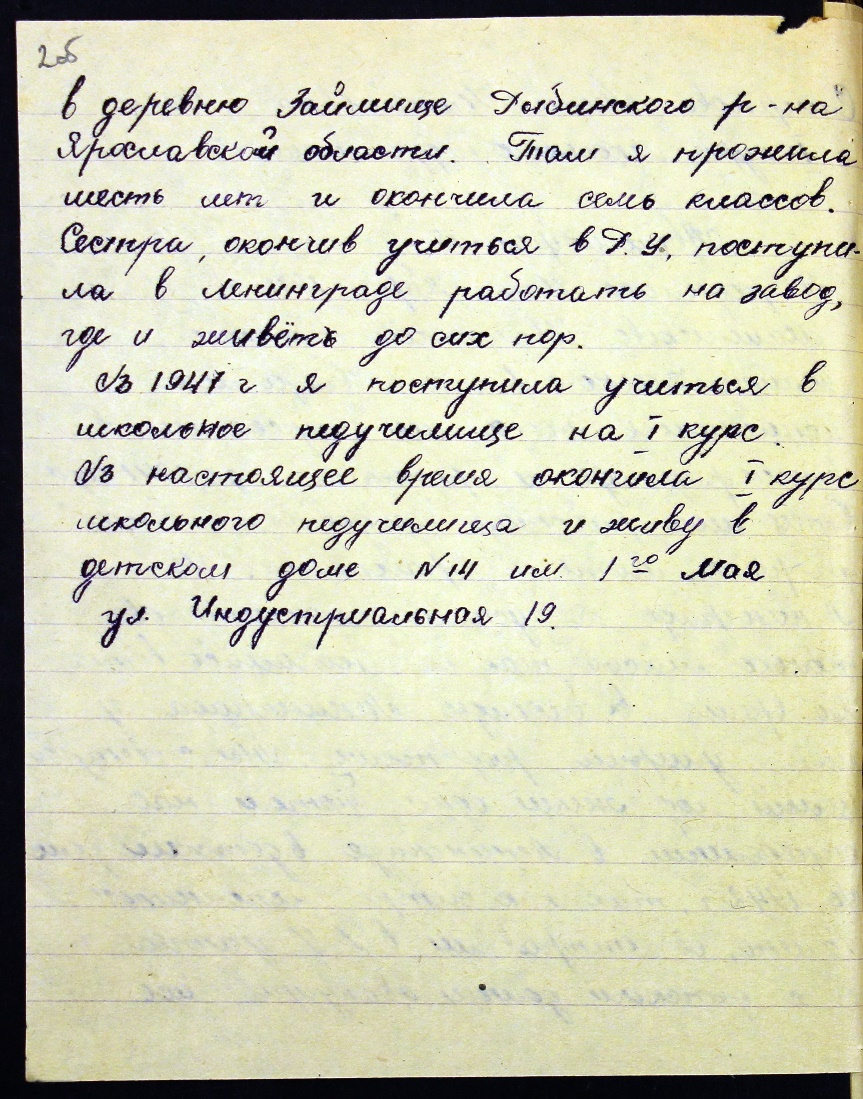 2об
в деревню Займище Рыбинского р-на
Ярославской области. Там я прожила
шесть лет и окончила семь классов.
Сестра, окончив учиться в Р.У., поступи-
ла в Ленинграде работать на завод,
где и живёть до сих пор.
В 1947 г я поступила учиться в
школьное педучилище на I курс.
В настоящее время окончила I курс
школьного педучилища и живу в
детском доме N 14 им. 1го Мая
ул. Индустриальная 19.